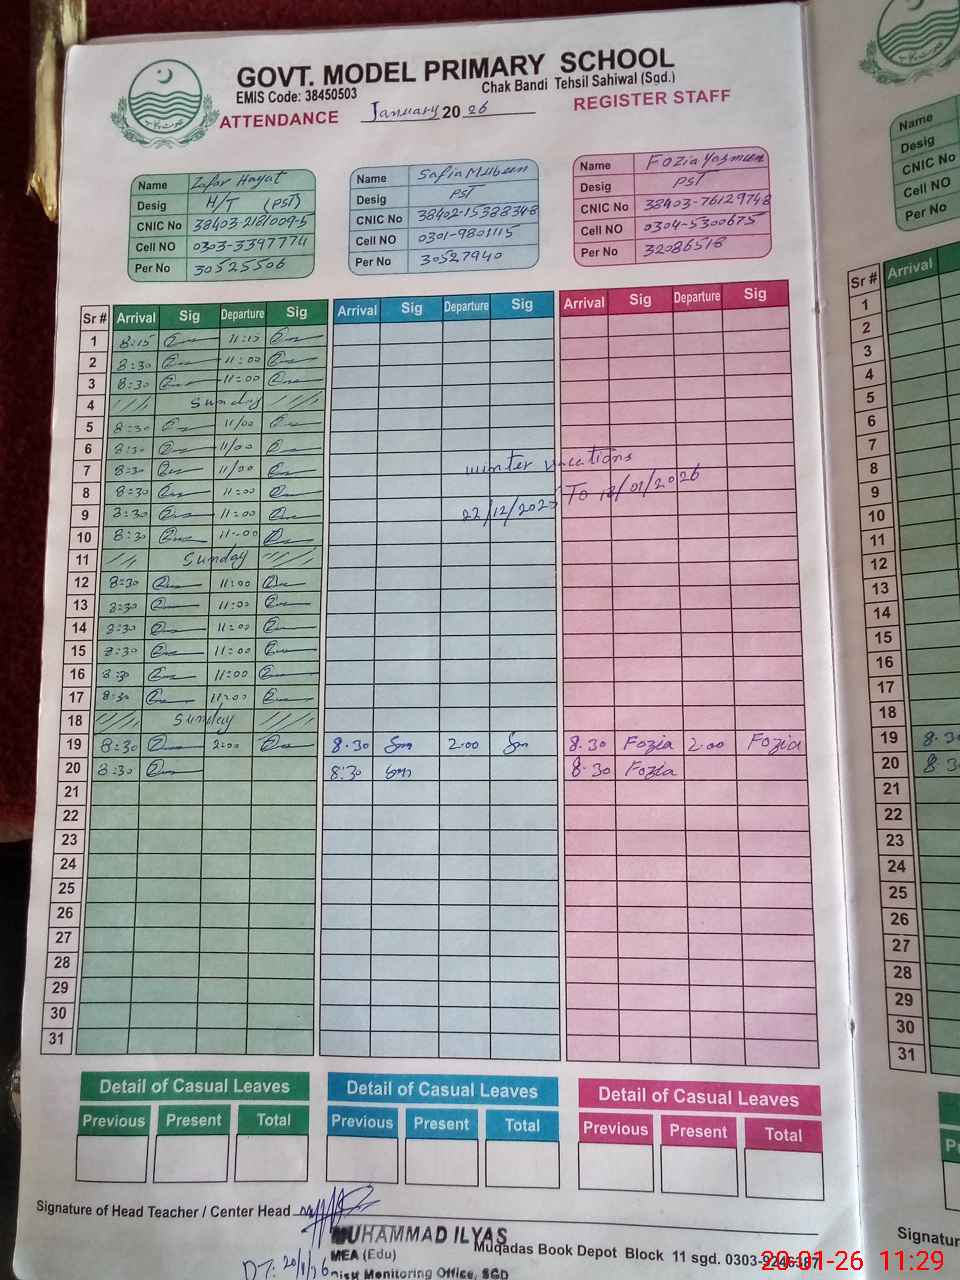 GOVT. MODEL PRIMARY SCHOOL
EMIS Code: 38450503 Chak Bandi Tehsil Sahiwal (Sgd.)
ATTENDANCE January 2026 REGISTER STAFF
Name Zafar Hayat
Desig H/T (PST)
CNIC No 38403-2181009-5
Cell NO 0303-3397774
Per No 30525506
Name Safia Mubeen
Desig PST
CNIC No 38402-1538834-8
Cell NO 0301-9801115
Per No 30527940
Name Fozia Yasmeen
Desig PST
CNIC No 38403-7612974-8
Cell NO 0304-5300675
Per No 32086518
Sr # Arrival Sig Departure Sig Arrival Sig Departure Sig Arrival Sig Departure Sig
1 8:15 11:15
2 8:30 11:00
3 8:30 11:00
4 Sunday
5 8:30 11/00
6 8:30 11/00
7 8:30 11/00 winter vacations
8 8:30 11:00
9 8:30 11:00 22/12/2025 To 18/01/2026
10 8:30 11:00
11 Sunday
12 8:30 11:00
13 8:30 11:00
14 8:30 11:00
15 8:30 11:00
16 8:30 11:00
17 8:30 11:00
18 Sunday
19 8:30 2:00 8.30 Sm 2.00 Sm 8.30 Fozia 2.00 Fozia
20 8:30 8:30 Sm 8.30 Fozia
21
22
23
24
25
26
27
28
29
30
31
Detail of Casual Leaves Detail of Casual Leaves Detail of Casual Leaves
Previous Present Total Previous Present Total Previous Present Total
Signature of Head Teacher / Center Head
MUHAMMAD ILYAS
MEA (Edu)
Monitoring Office, SGD
DT: 20/1/26
Muqadas Book Depot Block 11 sgd. 0303-9246387
Name
Desig
CNIC No
Cell NO
Per No
Sr # Arrival
1
2
3
4
5
6
7
8
9
10
11
12
13
14
15
16
17
18
19 8.30
20 8.30
21
22
23
24
25
26
27
28
29
30
31
20-01-26 11:29